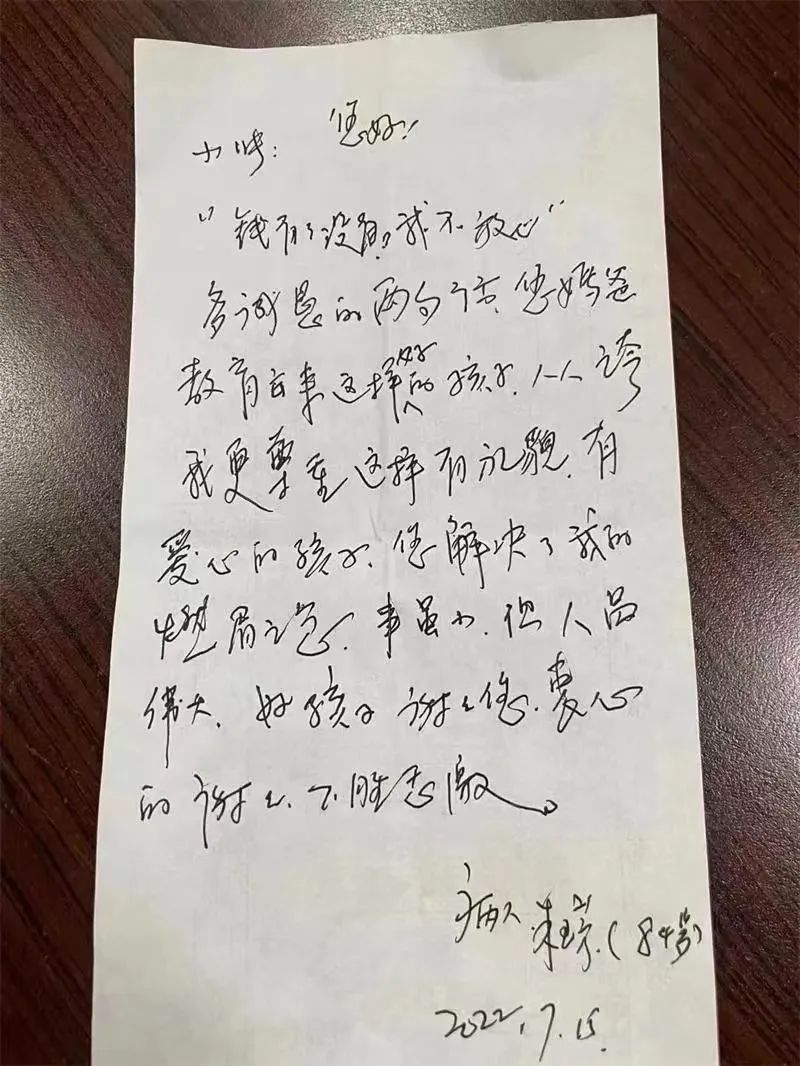 小峰： 您好！
“钱有了没有？我不放心”
多诚恳的两句话，您妈爸
教育出来这样好的孩子，人人夸
我更尊重这样有礼貌，有
爱心的孩子，您解决了我的
燃眉之急，事虽小，但人品
伟大，好孩子谢谢您，衷心
的谢谢，不胜感激。
病人 朱（84岁）
2022.7.15.